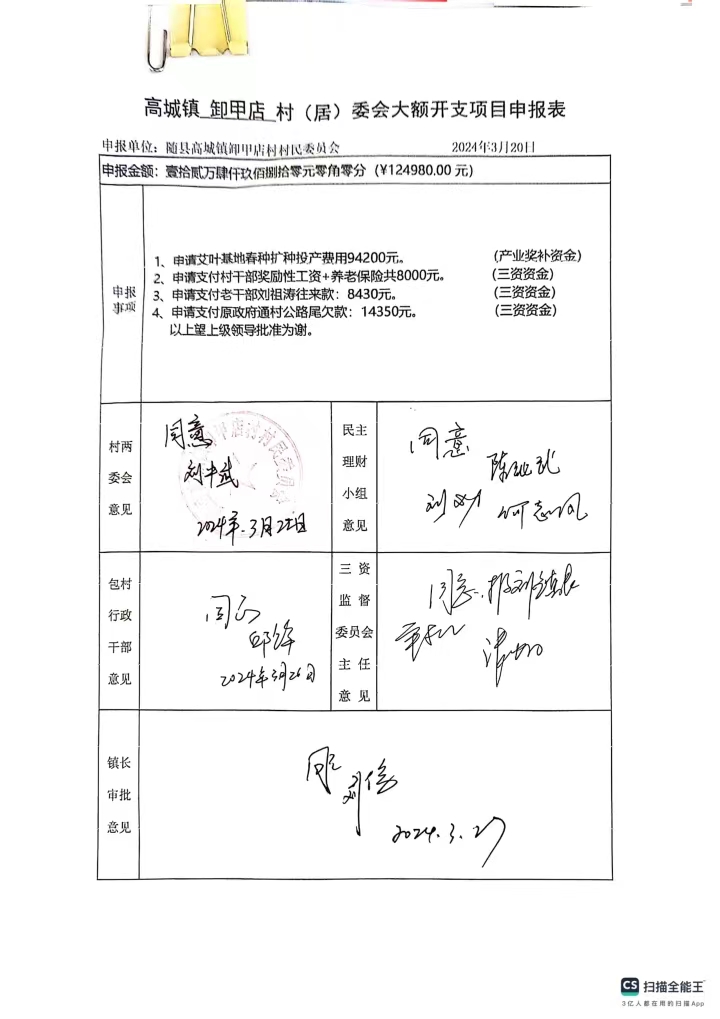 高城镇 卸甲店 村（居）委会大额开支项目申报表
申报单位：随县高城镇卸甲店村村民委员会 2024年3月20日
申报金额：壹拾贰万肆仟玖佰捌拾零元零角零分（¥124980.00 元）
申报
事项
1、申请艾叶基地春种扩种投产费用94200元。 (产业奖补资金)
2、申请支付村干部奖励性工资+养老保险共8000元。 (三资资金)
3、申请支付老干部刘祖涛往来款：8430元。 (三资资金)
4、申请支付原政府通村公路尾欠款：14350元。 (三资资金)
以上望上级领导批准为谢。
村两
委会
意见
同意
2024年.3月
民主
理财
小组
意见
同意
包村
行政
干部
意见
同意
2024年3月26日
三 资
监 督
委员会
主 任
意 见
同意
镇长
审批
意见
同意
刘俊
2024.3.27
CS 扫描全能王
3亿人都在用的扫描App